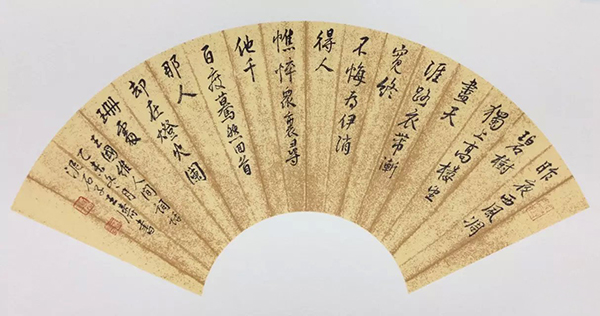 昨夜西風凋
碧樹
獨上高樓望
盡天
涯路衣帶漸
寬終
不悔為伊消
得人
憔悴衆裏尋
他千
百度驀然回首
那人
却在燈火闌
珊處
王國維人間詞話
乙未月
石子王書